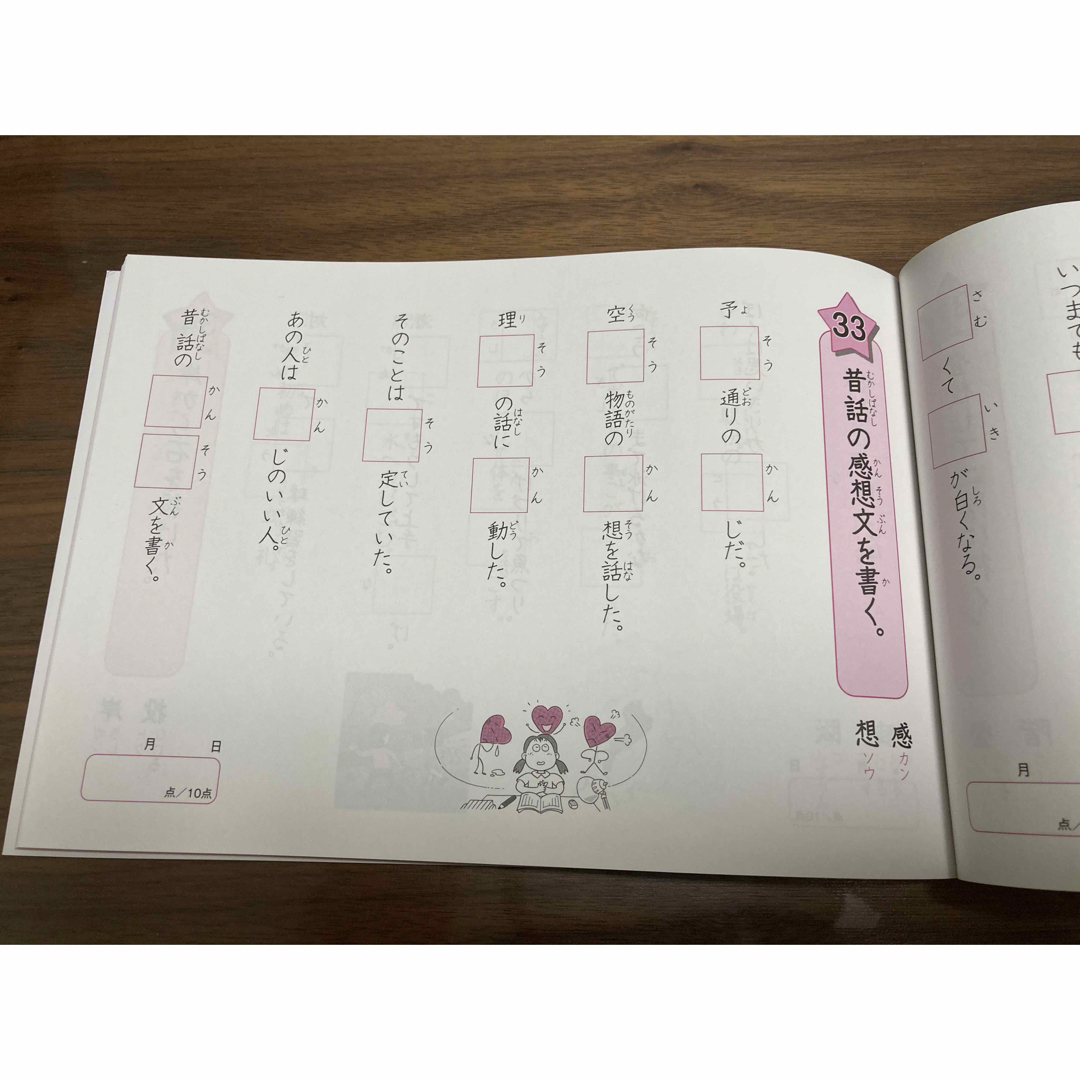 いつまでも
さむ
□くて
いき
□が白くなる。
しろ
月
点/
33
昔話の感想文を書く。
むかしばなし かん そう ぶん か
感 カン
想 ソウ
予□通りの□じだ。
よ そう どお かん
空□物語の□想を話した。
くう そう ものがたり かん そう はな
理□の話に□動した。
り そう はなし かん どう
そのことは□定していた。
そう てい
あの人は□じのいい人。
ひと かん ひと
昔話の□□文を書く。
むかしばなし かん そう ぶん か
月 日
点/10点